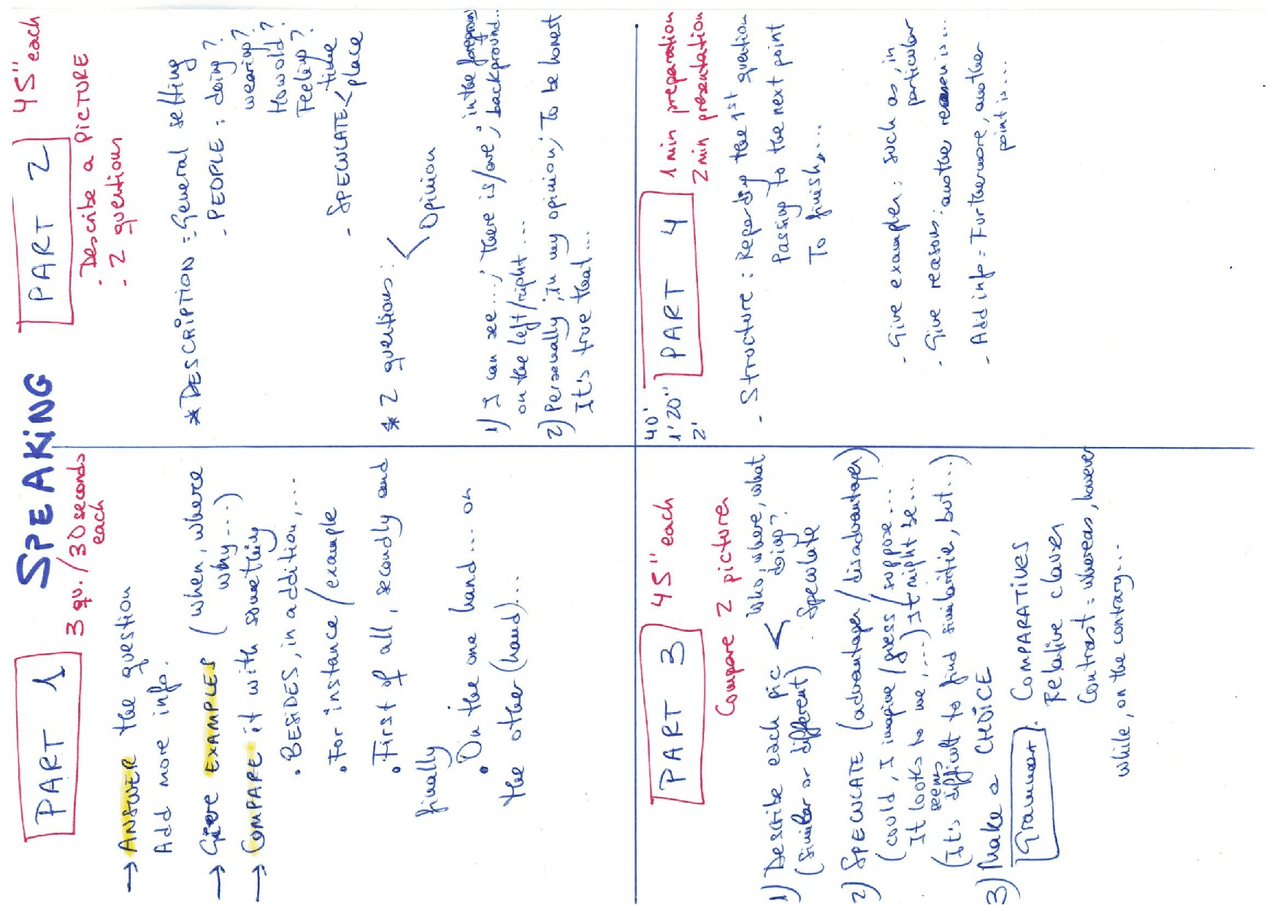 SPEAKING
PART 1
3 qu./30 seconds
each
→ ANSWER the question
Add more info.
→ Give EXAMPLES (when, where
why...)
→ COMPARE it with something
• BESIDES, in addition,...
• For instance/example
• First of all, secondly and
finally
• On the one hand... on
the other (hand)...
PART 2
45" each
Describe a PICTURE
2 questions
* DESCRIPTION = General setting
- PEOPLE: doing?
wearing?
How old?
Feeling?
- SPECULATE < time
place
* 2 questions: < Opinion
1) I can see...; there is/are; in the foreground
on the left/right... background...
2) Personally, in my opinion; To be honest
It's true that...
PART 3
45" each
Compare 2 pictures
1) Describe each pic < Who, where, what
(similar or different) doing?
Speculate
2) SPECULATE (advantages/disadvantages)
(could, I imagine/guess/suppose...
It looks to me,...) It might be...
seems
(It's difficult to find similaritie, but...)
3) Make a CHOICE
Grammar
COMPARATIVES
Relative clauses
Contrast = whereas, however
while, on the contrary...
40'
1'20"
2'
PART 4
1 min preparation
2 min presentation
- Structure: Regarding the 1st question
Passing to the next point
To finish,...
- Give examples: such as, in
particular
- Give reasons: another reason is...
- Add info = Furthermore, another
point is...